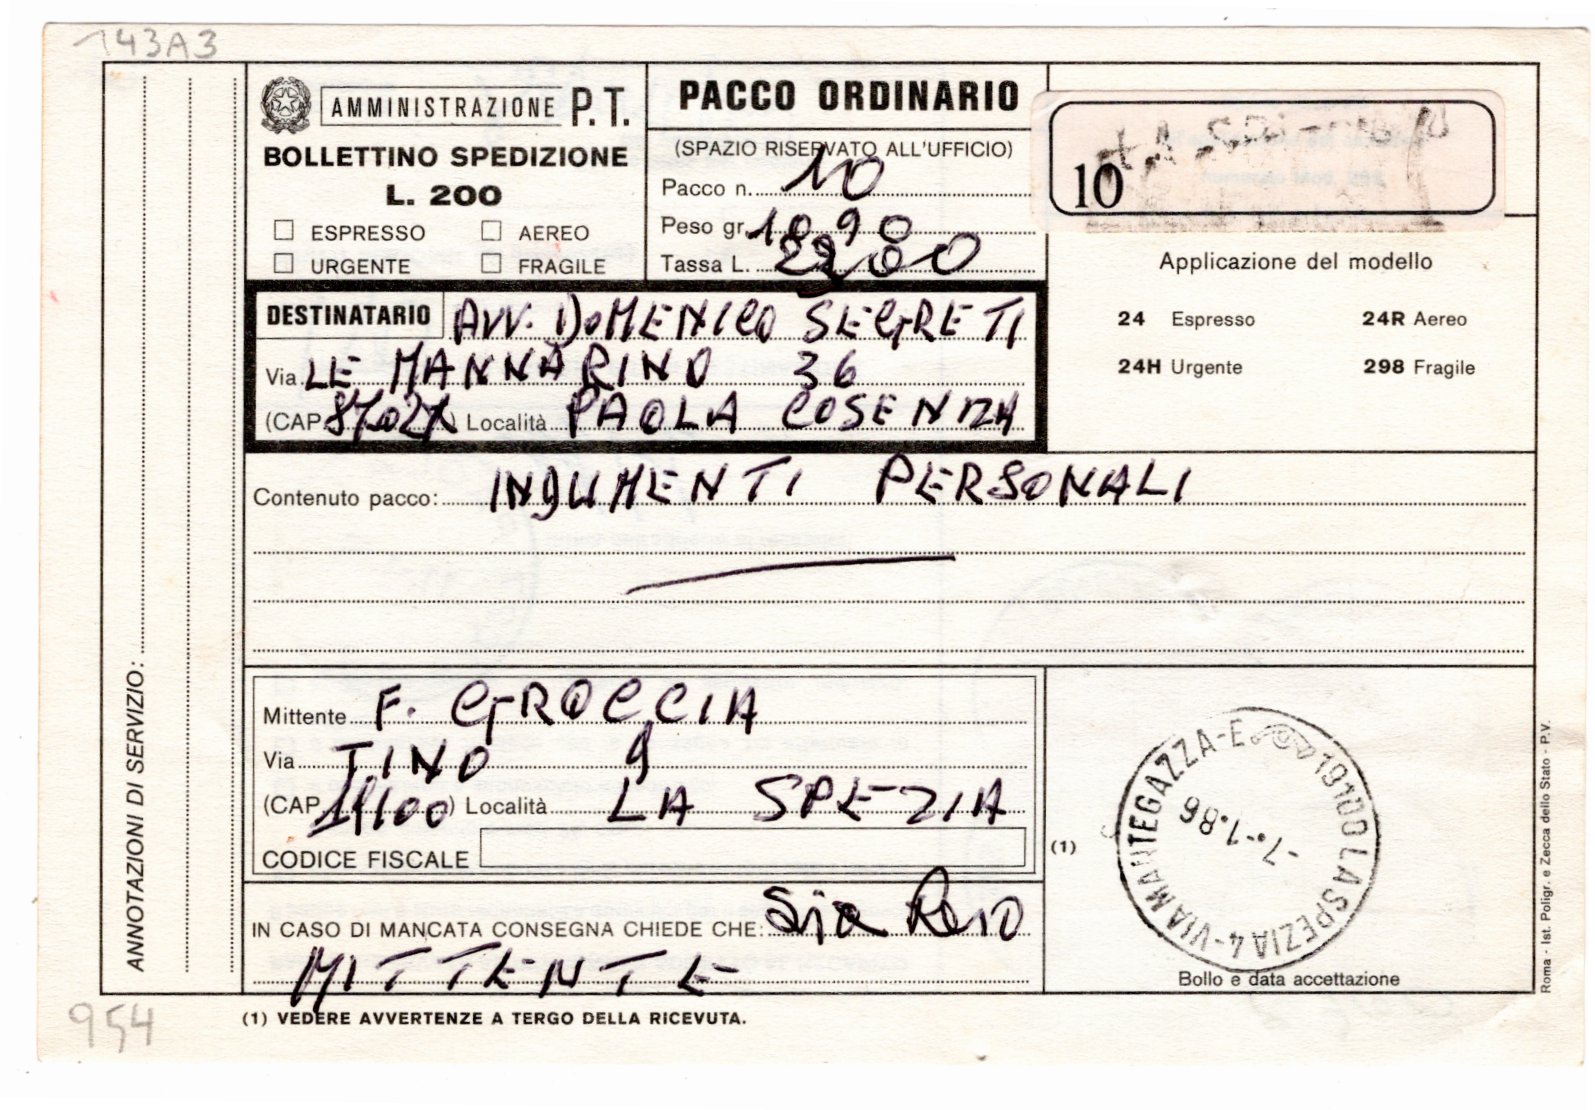 143A3
AMMINISTRAZIONE P.T.
BOLLETTINO SPEDIZIONE
L. 200
ESPRESSO AEREO
URGENTE FRAGILE
PACCO ORDINARIO
(SPAZIO RISERVATO ALL'UFFICIO)
Pacco n. 10
Peso gr. 1090
Tassa L. 2200
10
Applicazione del modello
24 Espresso 24R Aereo
24H Urgente 298 Fragile
DESTINATARIO AVV. DOMENICO SEGRETI
Via LE MANNARINO 36
(CAP 87027) Località PAOLA COSENZA
Contenuto pacco: INDUMENTI PERSONALI
ANNOTAZIONI DI SERVIZIO:
Mittente F. GROCCIA
Via TINO 9
(CAP 19100) Località LA SPEZIA
CODICE FISCALE
IN CASO DI MANCATA CONSEGNA CHIEDE CHE: Sia Reso
MITTENTE
(1)
19100 LA SPEZIA 4 - VIA MANTEGAZZA - E
-7.-1.86
Bollo e data accettazione
Roma - Ist. Poligr. e Zecca dello Stato - P.V.
(1) VEDERE AVVERTENZE A TERGO DELLA RICEVUTA.
954